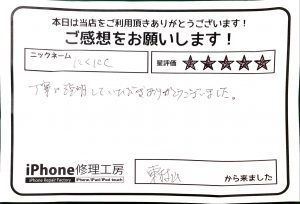 本日は当店をご利用頂きありがとうございます!
ご感想をお願いします!
ニックネーム
にくにく
星評価 ★★★★★
丁寧に説明していただきありがとうございました。
iPhone修理工房
iPhone Repair Factory iPhone/iPad/iPod touch
東村山 から来ました